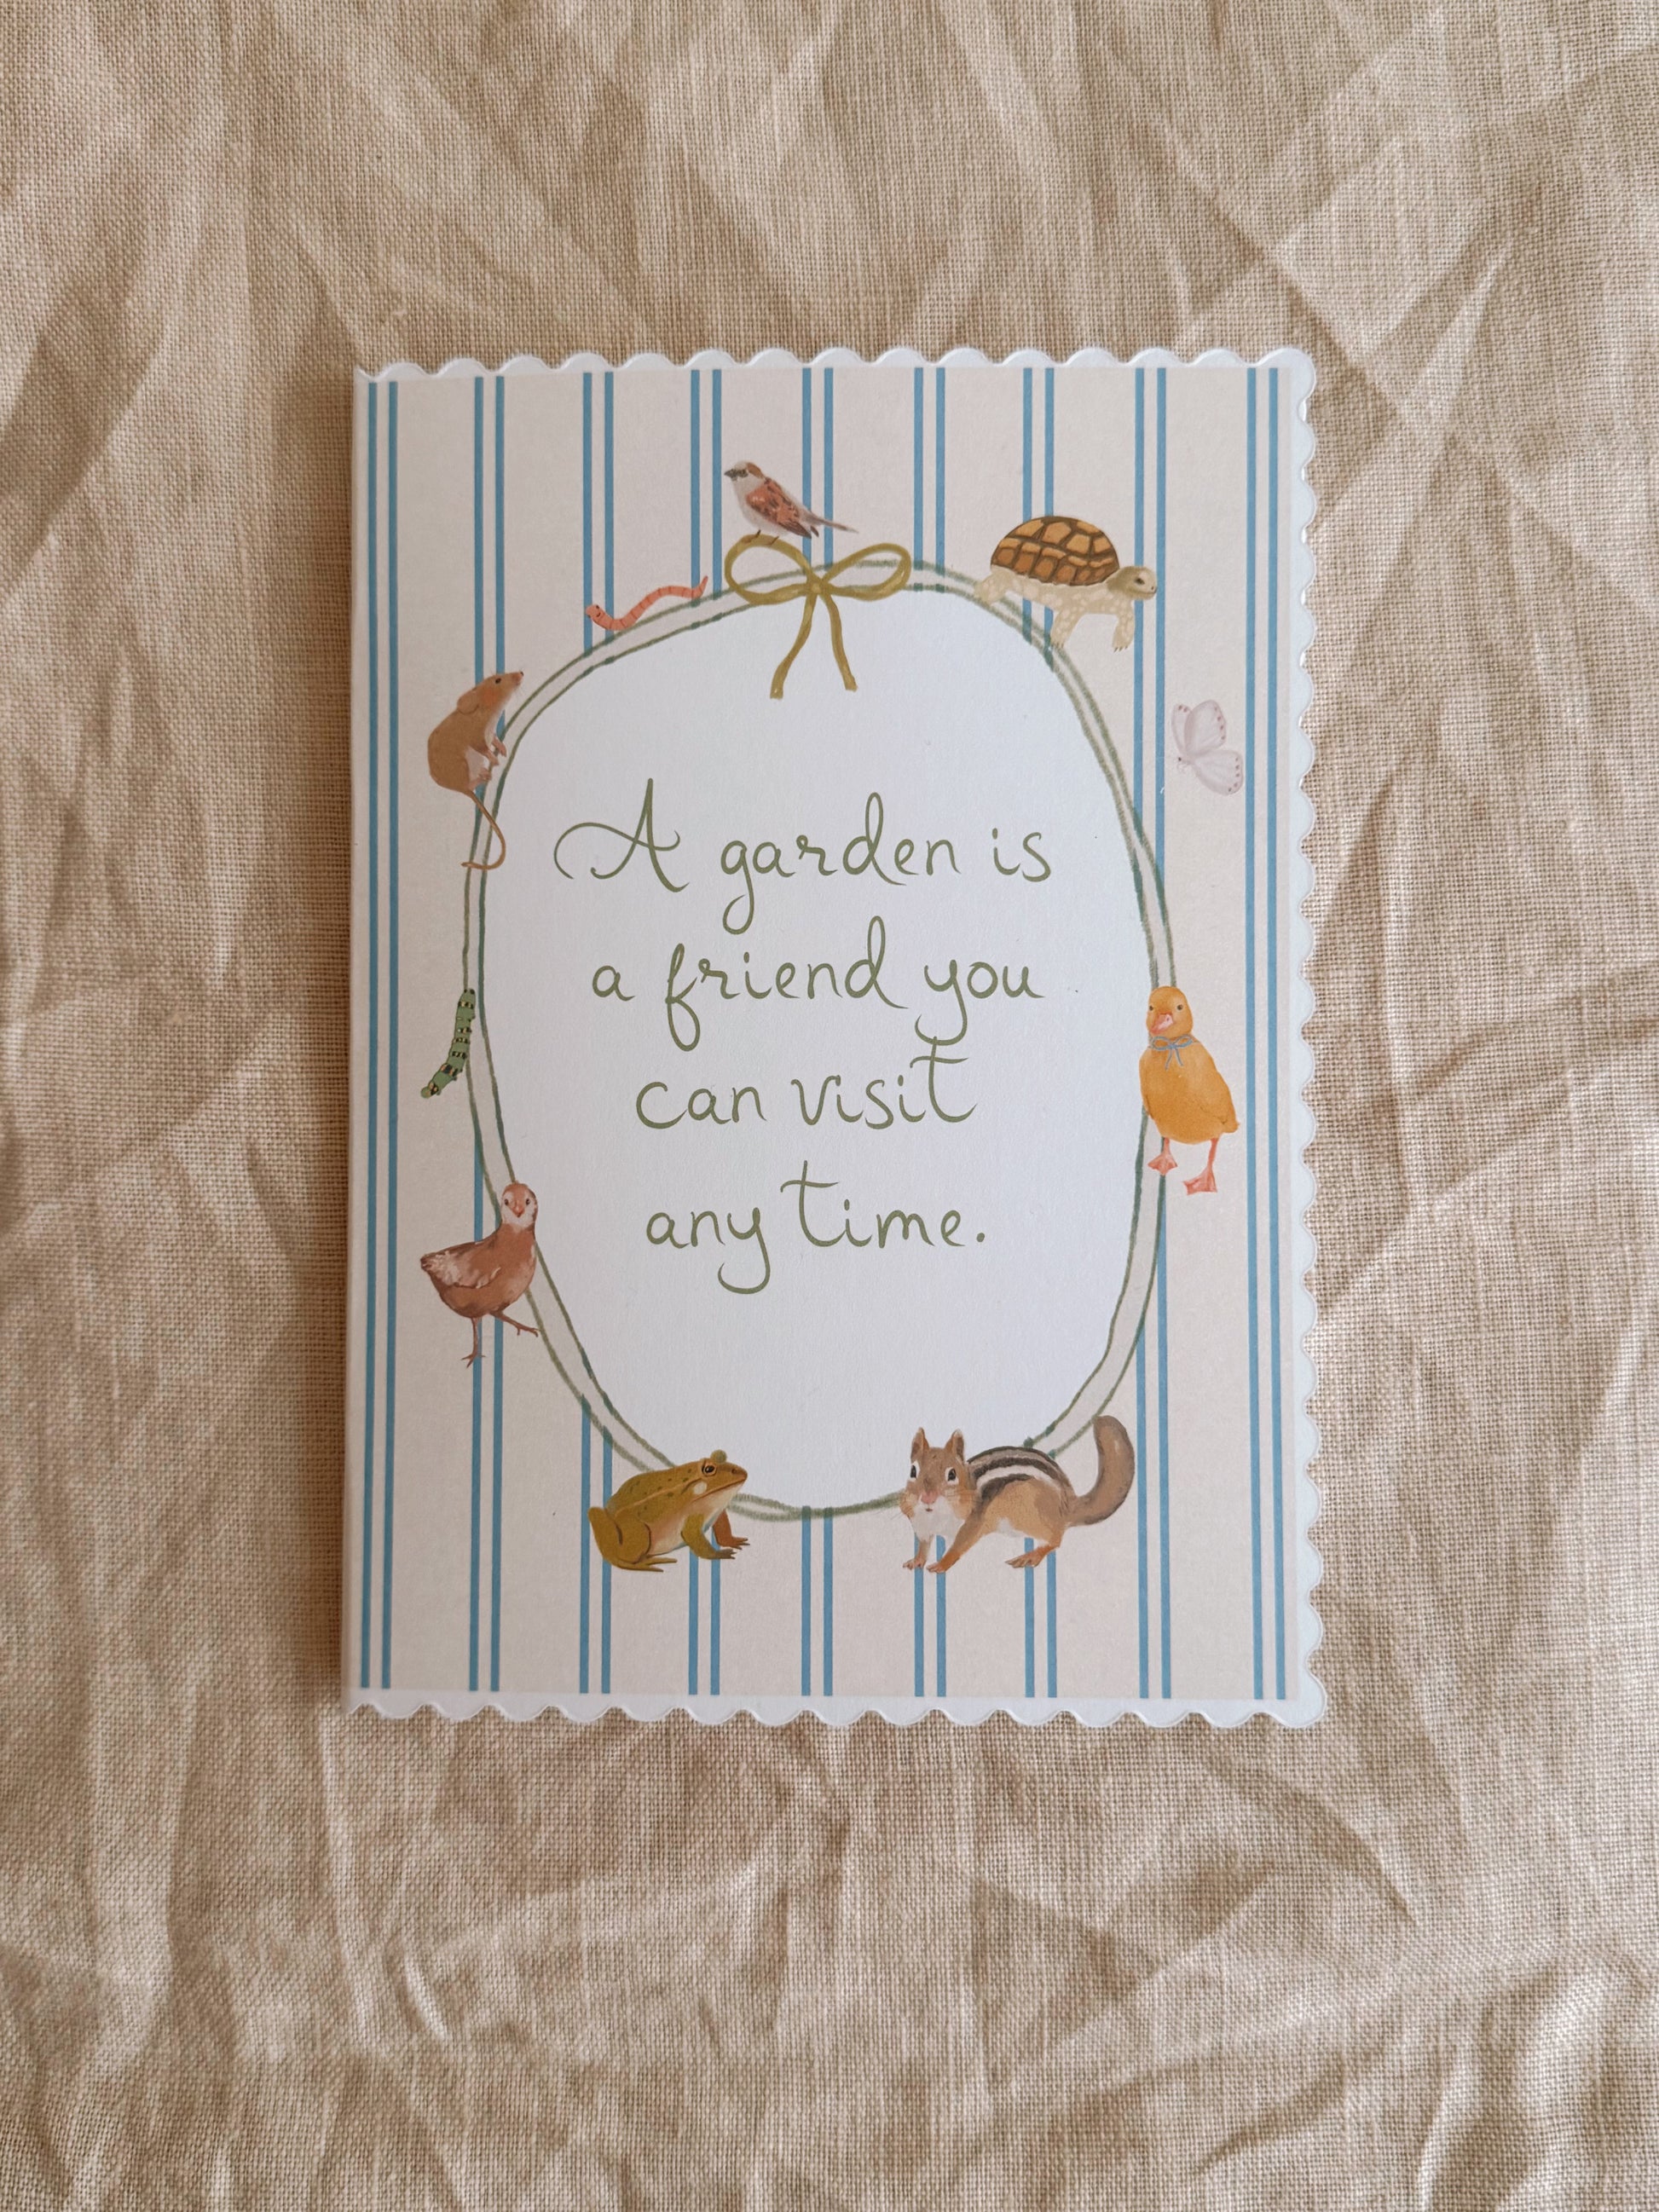 A garden is
a friend you
can visit
any time.